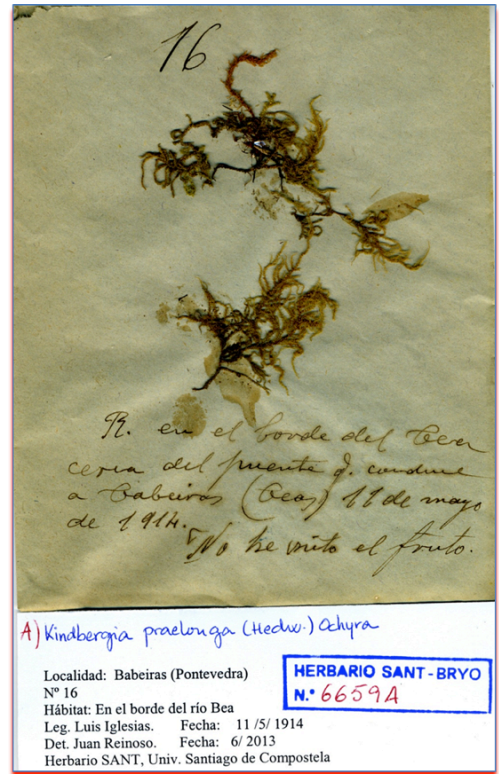 16
R. en el borde del Bea
cerca del puente q. conduce
a Babeiras (Beas) 11 de mayo
de 1914.
No he visto el fruto.
A) Kindbergia praelonga (Hedw.) Ochyra
Localidad: Babeiras (Pontevedra)
Nº 16
Hábitat: En el borde del río Bea
Leg. Luis Iglesias. Fecha: 11 /5/ 1914
Det. Juan Reinoso. Fecha: 6/ 2013
Herbario SANT, Univ. Santiago de Compostela
HERBARIO SANT-BRYO
N.º 6659A